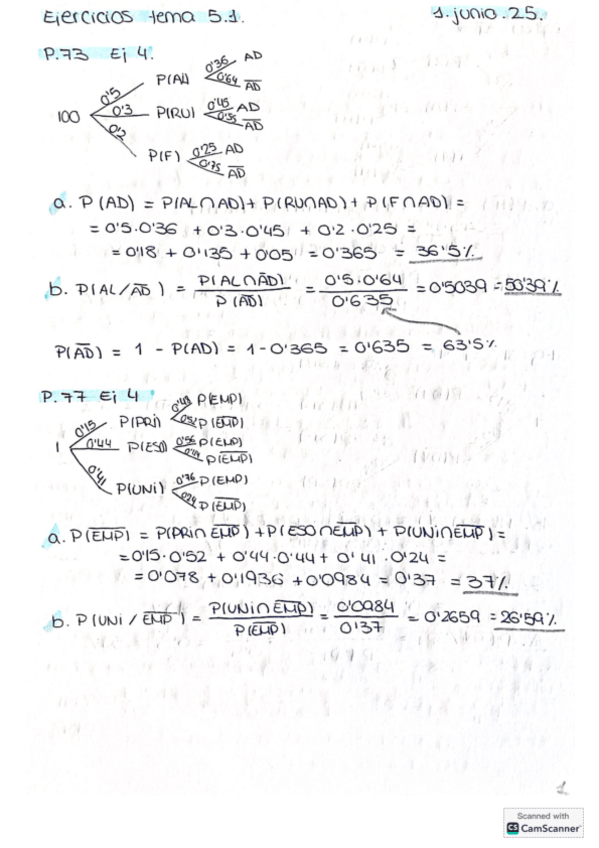 Ejercicios tema 5.1. 1.junio.25.
P.73 Ej 4.
100
0'5 P(Al) 0'36 AD
0'64 A̅D̅
0'3 P(RU) 0'45 AD
0'55 A̅D̅
0'2 P(F) 0'25 AD
0'75 A̅D̅
a. P(AD) = P(AL∩AD)+ P(RU∩AD) + P(F∩AD) =
= 0'5·0'36 + 0'3·0'45 + 0'2·0'25 =
= 0'18 + 0'135 + 0'05 = 0'365 = 36'5%
b. P(AL/A̅D̅) = P(AL∩A̅D̅) / P(A̅D̅) = 0'5·0'64 / 0'635 = 0'5039 = 50'39%
P(A̅D̅) = 1 - P(AD) = 1-0'365 = 0'635 = 63'5%
P.77 Ej 4
1
0'15 P(PRI) 0'48 P(EMP)
0'52 P(E̅M̅P̅)
0'44 P(ESO) 0'56 P(EMP)
0'44 P(E̅M̅P̅)
0'41 P(UNI) 0'76 P(EMP)
0'24 P(E̅M̅P̅)
a. P(E̅M̅P̅) = P(PRI∩E̅M̅P̅) + P(ESO∩E̅M̅P̅) + P(UNI∩E̅M̅P̅) =
= 0'15·0'52 + 0'44·0'44 + 0'41·0'24 =
= 0'078 + 0'1936 + 0'0984 = 0'37 = 37%
b. P(UNI/E̅M̅P̅) = P(UNI∩E̅M̅P̅) / P(E̅M̅P̅) = 0'0984 / 0'37 = 0'2659 = 26'59%
1
Scanned with
CS CamScanner